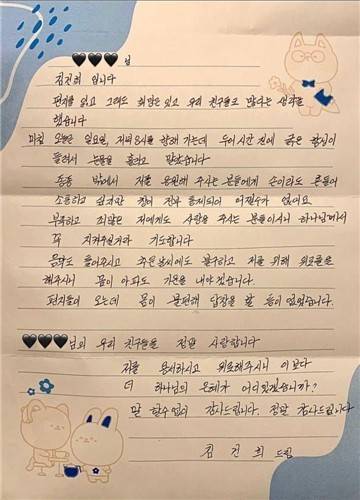 🖤🖤🖤님
김건희 입니다
편지를 읽고 그래도 희망은 있고 우리 친구들도 많다는 생각을
했습니다
오늘은 일요일, 저녁 8시를 향해 가는데 두어시간 전에 굵은 함성이
들려서 눈물을 흘리고 말았습니다
종종 밖에서 저를 응원해 주시는 분들에게 손이라도 흔들어
소통하고 싶지만 창이 전부 통제되어 어쩔수가 없어요
부족하고 죄많은 저에게도 사랑을 주시는 분들이시니 하나님께서
꼭 지켜주실거라 기도합니다
음악도 틀어주시고 추운날씨에도 불구하고 저를 위해 위로를
해주시니 몸이 아파도 기운을 내야겠습니다
편지들이 오는데 몸이 불편해 답장을 할 틈이 없었습니다.
🖤🖤🖤님의 우리 친구들을 정말 사랑합니다
저를 용서하시고 위로해주시니 이보다
더 하나님의 은혜가 어디있겠습니까?
말 할수 없이 감사드립니다. 정말 감사드립니다
김건희 드림